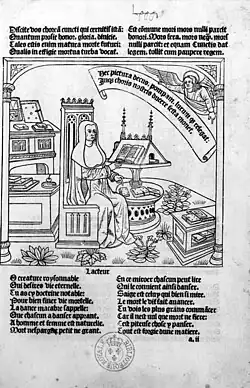 Discite vos choreã cuncti qui cernitis istã
Quantum prosit honor. gloria. divicie.
Tales estis enim matura morte futuri:
Qualis in effigie mortua turba vocat.
Est cõmune mori mors nulli parcit
honori. Mors fera. mors mors
nulli parcit: et equam Cunctis dat
legem. tollit cum paupere regem.
Hec pictura decus. pompam. luxumqʒ relegat:
Inqʒ choris nostris ducere festa monet.
Lacteur
O creature roysonnable
Qui desires vie eternelle.
Tu as cy doctrine notable:
Pour bien finer vie mortelle.
La dance macabre sappelle:
Que chascun a danser apprant.
A homme et femme est naturelle.
Mort nespargne petit ne grant.
En ce miroer chascun peut lire
Qui le convient ainsi danser.
Saige est celuy qui bien si mire.
Le mort le vif fait avancer.
Tu vois les plus grans commancer
Car il nest nul que mort ne fiere:
Cest piteuse chose y panser.
Tout est forgie dune matiere.
a. ii